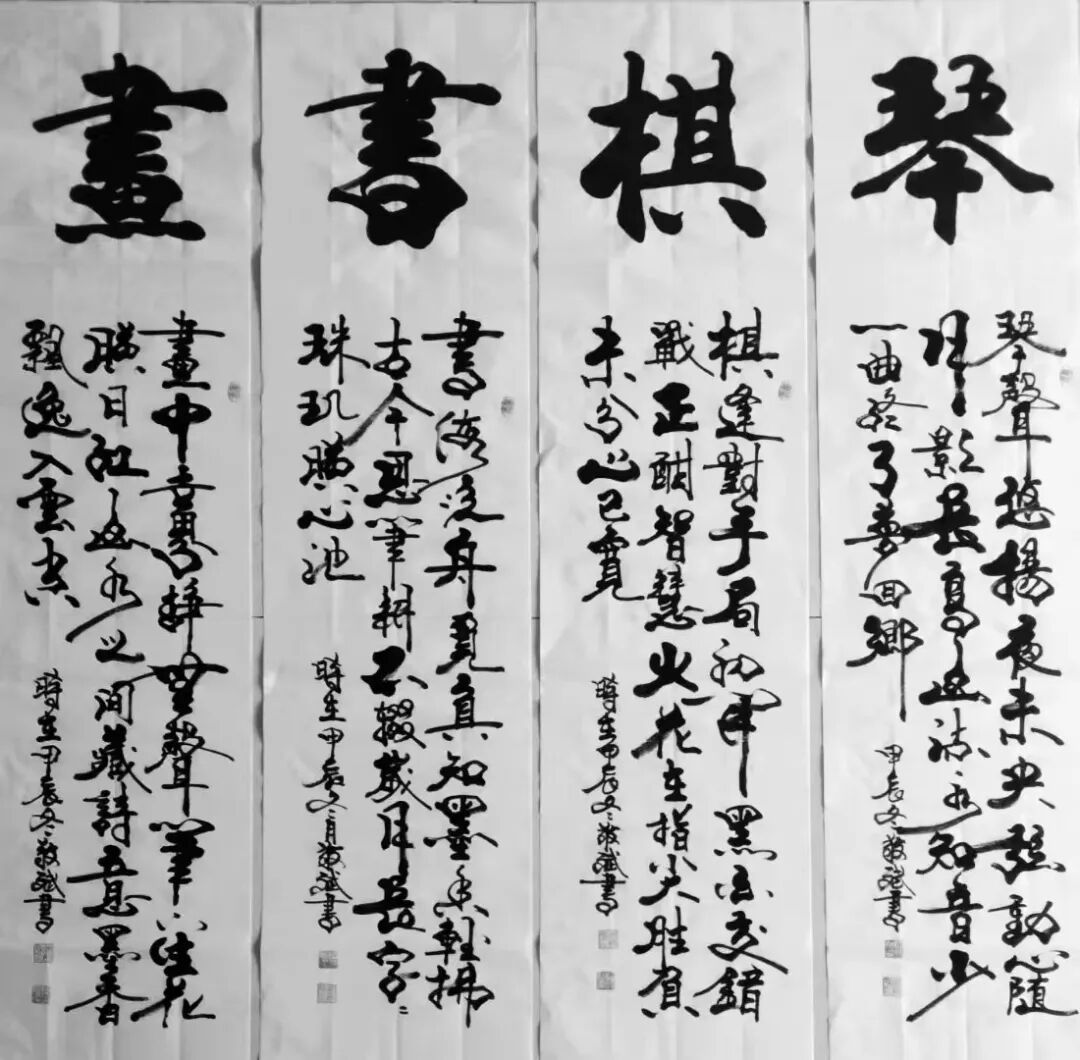 琴
琴聲悠揚夜未央弦動心隨
月影長高山流水知音少
一曲終了夢回鄉
甲辰冬敬斌書
棋
棋逢對手局初黑白交錯
戰正酣智慧火花在指尖胜負
未分心已寬
時在甲辰冬敬斌書
書
書海泛舟覓真知墨香輕拂
古今思筆耕不輟歲月長字字
珠玑映心池
時在甲辰冬月敬斌書
畫
畫中意無聲筆下生花
映日紅山水之間藏詩意墨香
飄逸入雲空
時在甲辰冬敬斌書